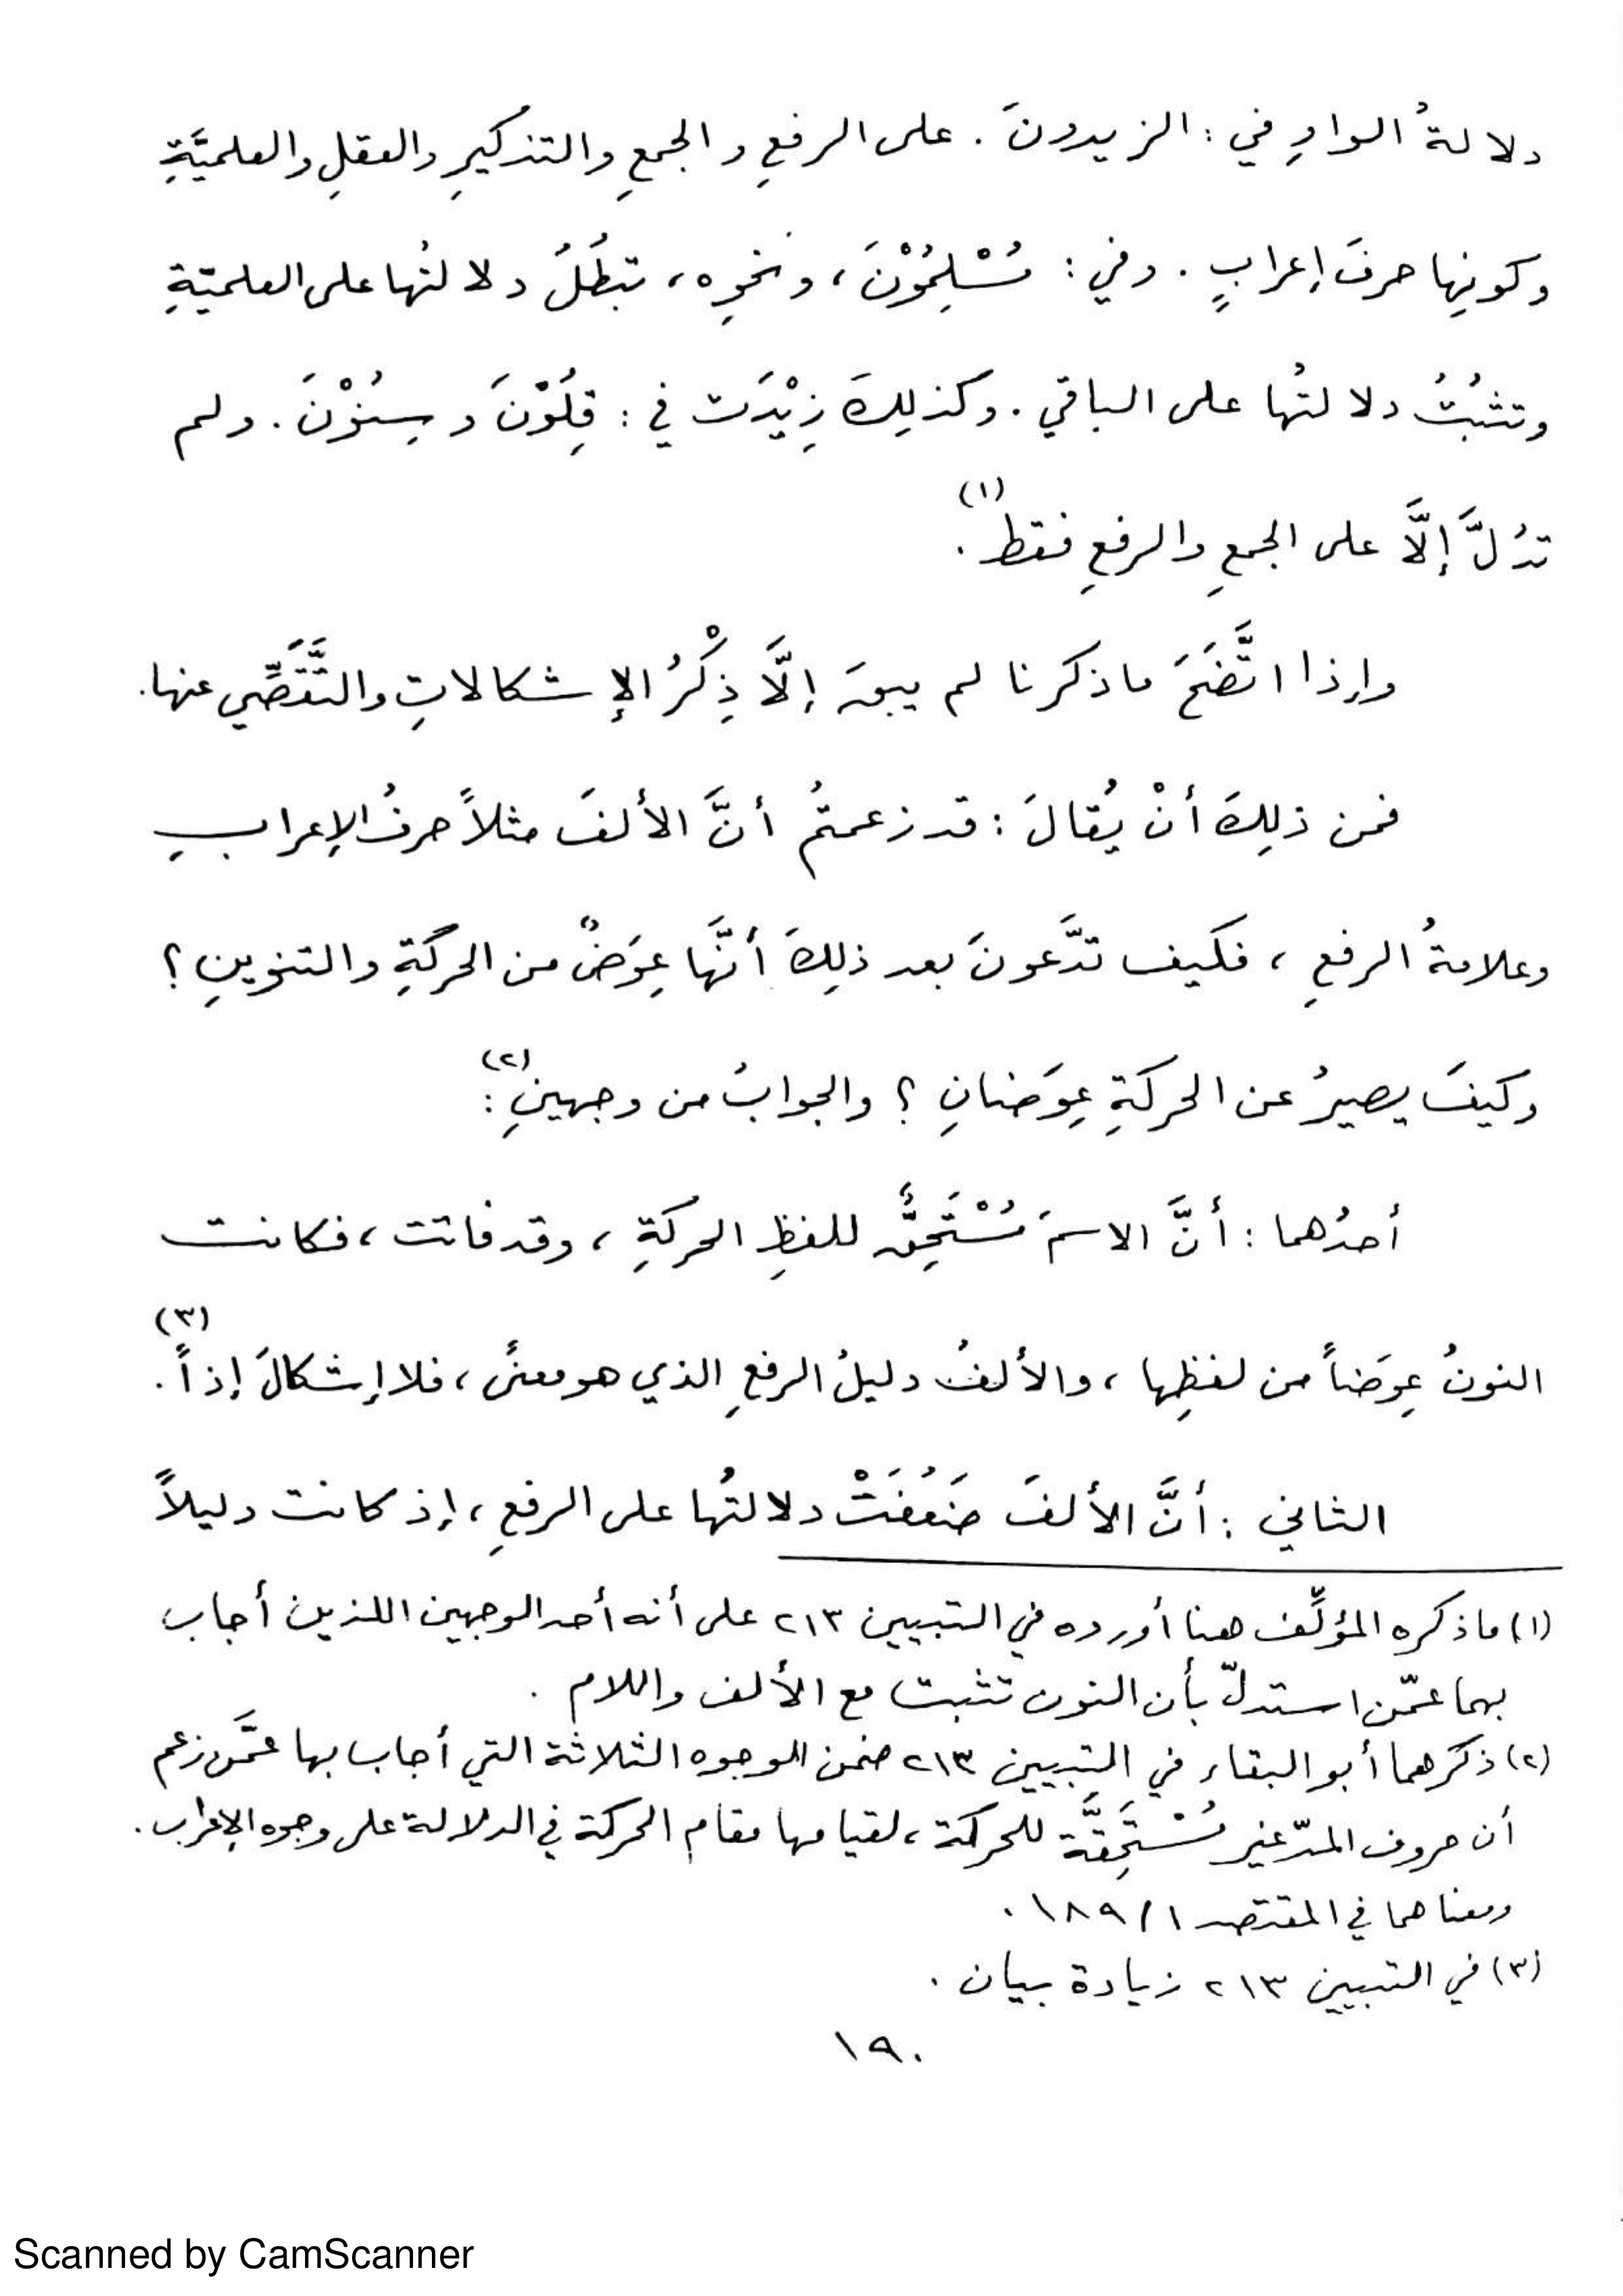 دلالةُ الواوِ في : الزيدونَ . على الرفعِ والجمعِ والتذكيرِ والعقلِ والعلميَّةِ
وكونِها حرفَ إعرابٍ . وفي : مُسْلِمُوْنَ ، ونحوِه ، تبطُلُ دلالتُها على العلميّةِ
وتثبُتُ دلالتُها على الباقي . وكذلِكَ زِيْدَت في : قِلُوْنَ وسِنُوْنَ . ولم
تدُلَّ إلَّا على الجمعِ والرفعِ فقط(١) .
وإذا اتَّضَحَ ماذكرنا لم يبقَ إلَّا ذِكْرُ الإشكالاتِ والتَّفَصِّي عنها .
فمن ذلِكَ أنْ يُقالَ : قد زعمتُم أنَّ الألفَ مثلاً حرفُ الإعرابِ
وعلامةُ الرفعِ ، فكيف تدَّعونَ بعد ذلِكَ أنَّها عِوَضٌ من الحركَةِ والتنوينِ ؟
وكيفَ يصيرُ عن الحركَةِ عِوَضانِ ؟ والجوابُ من وجهينِ(٢) :
أحدُهما : أنَّ الاسمَ مُسْتَحِقٌّ للفظِ الحركةِ ، وقد فاتت ، فكانت
النونُ عِوَضاً من لفظِها ، والألفُ دليلُ الرفعِ الذي هو معنىً ، فلا إشكالَ إذاً(٣) .
الثاني : أنَّ الألفَ ضَعُفَتْ دلالتُها على الرفعِ ، إذ كانت دليلاً
(١) ماذكره المؤلِّف هنا أورده في التبيين ٢١٣ على أنه أحد الوجهين اللذين أجاب
بهما عمّن استدلّ بأن النون تثبت مع الألف واللام .
(٢) ذكرهما أبو البقاء في التبيين ٢١٣ ضمن الوجوه الثلاثة التي أجاب بها عمَّن زعم
أن حروف المدّ غير مُسْتَحِقَّة للحركة ، لقيامها مقام الحركة في الدلالة على وجوه الإعراب .
ومعناهما في المقتصد ١/١٨٩ .
(٣) في التبيين ٢١٣ زيادة بيان .
١٩٠
Scanned by CamScanner